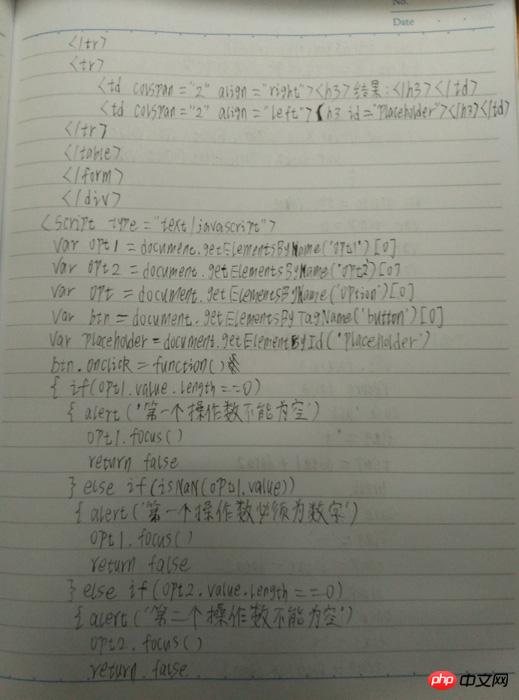 No.
Date
</tr>
<tr>
<td colspan="2" align="right"><h3>结果:</h3></td>
<td colspan="2" align="left"><h3 id="placeholder"></h3></td>
</tr>
</table>
</form>
</div>
<script type="text/javascript">
var opt1 = document.getElementsByName('opt1')[0]
var opt2 = document.getElementsByName('opt2')[0]
var opt = document.getElementsByName('option')[0]
var btn = document.getElementsByTagName('button')[0]
var placeholder = document.getElementById('placeholder')
btn.onclick = function()
{ if(opt1.value.length ==0)
{ alert('第一个操作数不能为空')
opt1.focus()
return false
} else if(isNaN(opt1.value))
{ alert('第一个操作数必须为数字')
opt1.focus()
return false
} else if(opt2.value.length ==0)
{ alert('第二个操作数不能为空')
opt2.focus()
return false
php 中文网